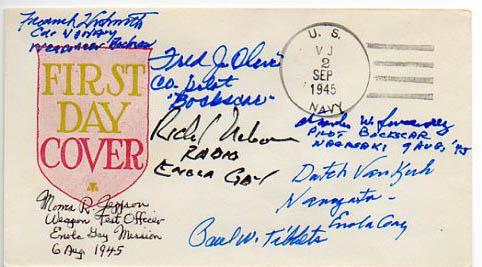 Frederick L. Ashworth
Cdr US Navy
Weaponeer Bockscar
FIRST
DAY
COVER
Fred J. Olivi
Co-pilot
"Bockscar"
U. S.
VJ
2
SEP
1945
NAVY
Richard Nelson
RADIO
ENOLA GAY
Charles W. Sweeney
PILOT BOCKSCAR
NAGASAKI 9 AUG. '45
Dutch Van Kirk
Navigator -
Enola Gay
Morris R. Jeppson
Weapon Test Officer
Enola Gay Mission
6 Aug 1945
Paul W. Tibbets